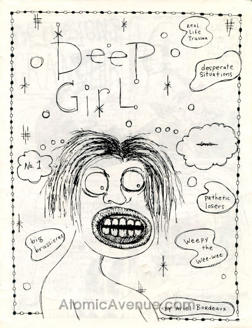 Real
Life
Trauma
DEEP
GiRL
desperate
Situations
No. 1
Pathetic
losers
big
brassieres
Weepy
the
Wee-wee
by Ariel Bordeaux
AtomicAvenue.com